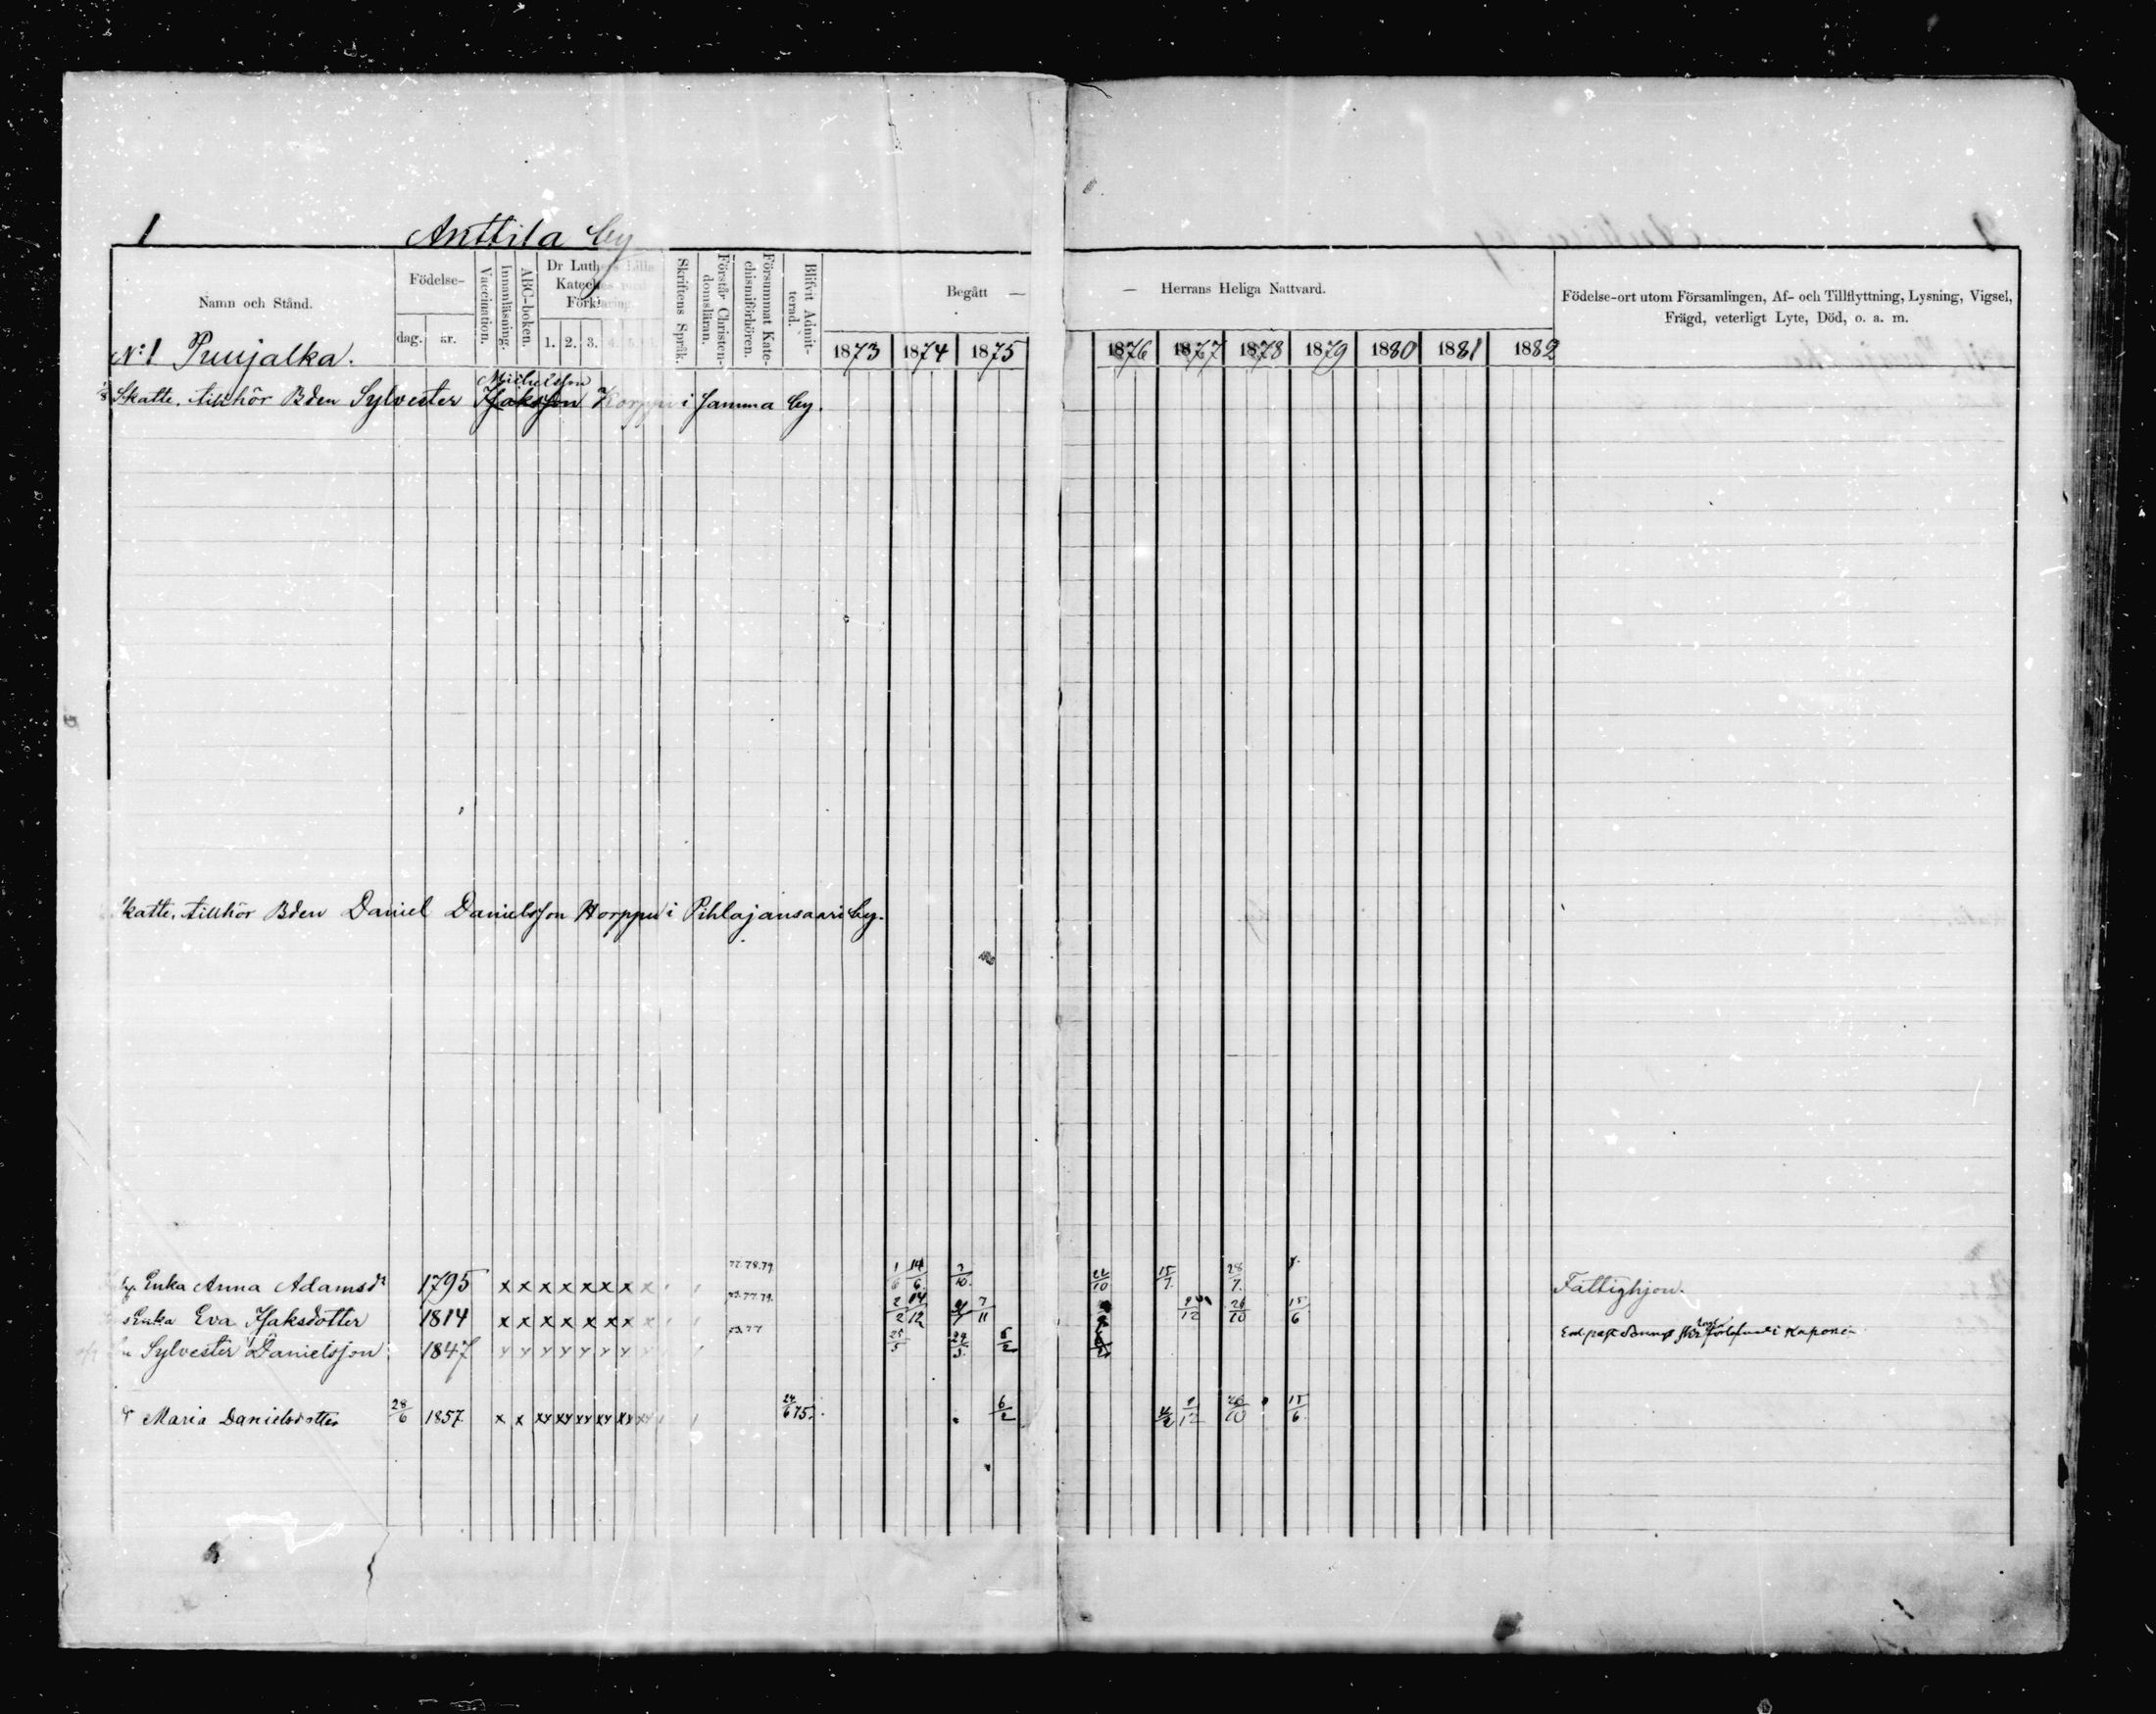 1 Anttila by
Namn och Stånd. Födelse- dag. år. Vaccination. Innanläsning. ABC-boken. Dr Luthers Lilla Kateches med Förklaring. 1. 2. 3. 4. 5. Skriftens Språk. Förstår Christendomsläran. Försummat Katechismiförhören. Blifvit Admitterad. Begått — — Herrans Heliga Nattvard. Födelse-ort utom Församlingen, Af- och Tillflyttning, Lysning, Vigsel, Frägd, veterligt Lyte, Död, o. a. m.
1873 1874 1875 1876 1877 1878 1879 1880 1881 1882
N:1 Puujalka.
Michelsson
Skatte, tillhör Bden Sylvester Isaksson Korppu i samma by.
katte, tillhör Bden Daniel Danielsson Horppu i Pihlajansaari by.
77.78.79
Enka Anna Adamsdr 1795 x x x x x x x x 1/6 14/6 15/7 28/7 Fattighjon.
Enka Eva Isaksdotter 1814 x x x x x x x x 2/2 14/12 7/11 9/12 26/10 15/6
Sylvester Danielsson 1847 25/5 6/2
Maria Danielsdotter 28/6 1857 x x xx xx xx xx xx 24/6 75. 6/2 9/12 26/10 15/6